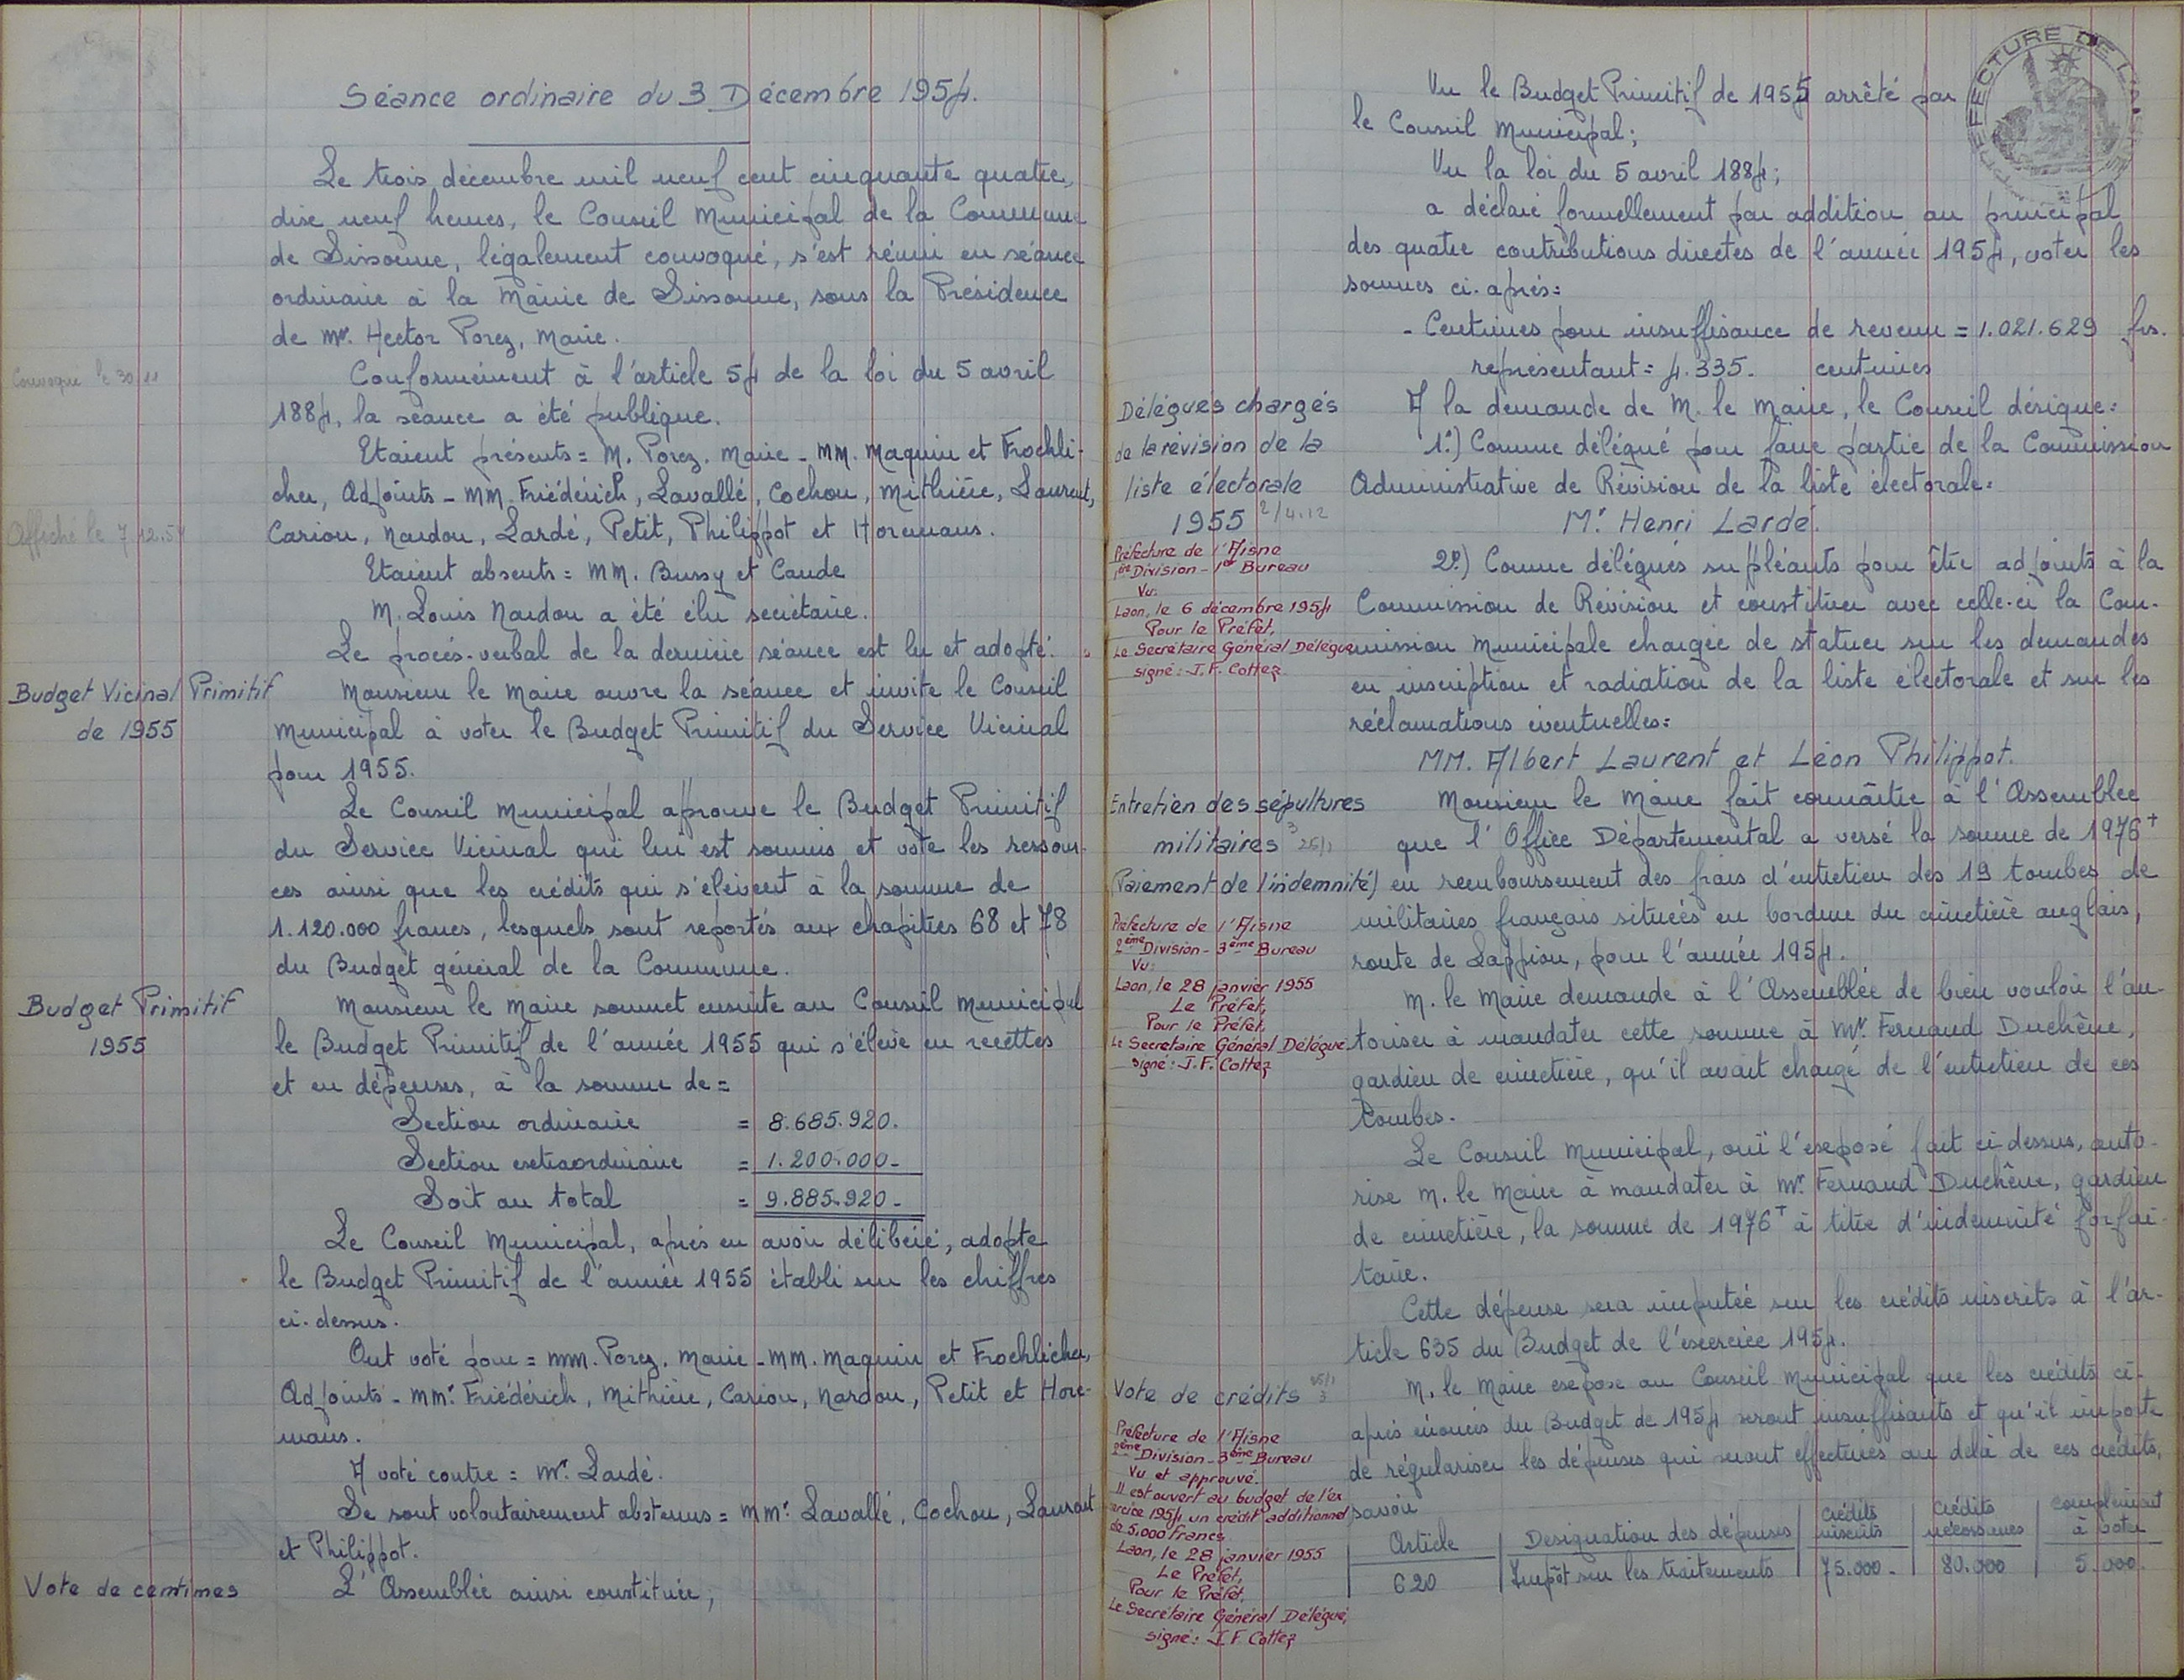 Séance ordinaire du 3 Décembre 1954.
Le trois décembre mil neuf cent cinquante quatre,
dix neuf heures, le Conseil Municipal de la Commune
de Sissonne, légalement convoqué, s'est réuni en séance
ordinaire à la Mairie de Sissonne, sous la Présidence
de Mr. Hector Porez, Maire.
Convoqué le 30/11
Conformément à l'article 54 de la loi du 5 avril
1884, la séance a été publique.
Etaient présents = M. Porez. Maire - MM. Maquin et Froehli-
cher, Adjoints - MM. Friédérich, Lavallé, Cochon, Mithière, Laurent,
Affiché le 7.12.54
Cariou, Nardou, Lardé, Petit, Philippot et Horemans.
Etaient absents = MM. Bussy et Caude
M. Louis Nardou a été élu secrétaire.
Le procès-verbal de la dernière séance est lu et adopté.
Budget Vicinal Primitif
de 1955
Monsieur le Maire ouvre la séance et invite le Conseil
Municipal à voter le Budget Primitif du Service Vicinal
pour 1955.
Le Conseil Municipal aprouve le Budget Primitif
du Service Vicinal qui lui est soumis et vote les ressour-
ces ainsi que les crédits qui s'élèvent à la somme de
1.120.000 francs, lesquels sont reportés aux chapitres 68 et 78
du Budget général de la Commune.
Budget Primitif
1955
Monsieur le Maire soumet ensuite au Conseil Municipal
le Budget Primitif de l'année 1955 qui s'élève en recettes
et en dépenses, à la somme de =
Section ordinaire = 8.685.920.
Section extraordinaire = 1.200.000-
Soit au total = 9.885.920-
Le Conseil Municipal, après en avoir délibéré, adopte
le Budget Primitif de l'année 1955 établi sur les chiffres
ci-dessus.
Ont voté pour = MM. Porez. Maire - MM. Maquin et Froehlicher,
Adjoints - MMrs Friédérich, Mithière, Cariou, Nardou, Petit et Hore-
mans.
A voté contre = Mr. Lardé.
Se sont volontairement abstenus = MMrs Lavallé, Cochon, Laurent
et Philippot.
Vote de centimes
L'Assemblée ainsi constituée,
PREFECTURE DE L'AISNE
Vu le Budget Primitif de 1955 arrêté par
le Conseil Municipal;
Vu la loi du 5 avril 1884;
a déclaré formellement par addition au principal
des quatre contributions directes de l'année 1954, voter les
sommes ci-après =
- Centimes pour insuffisance de revenu = 1.021.629 frs.
représentant = 4.335. centimes
Délégués chargés
de la révision de la
liste électorale
1955 2/4.12
Préfecture de l'Aisne
1ère Division - 1er Bureau
Vu:
Laon, le 6 décembre 1954
Pour le Préfet,
Le Secrétaire Général Délégué
signé: J.F. Cottez
A la demande de M. le Maire, le Conseil désigne =
1°) Comme délégué pour faire partie de la Commission
Administrative de Révision de la liste électorale =
Mr Henri Lardé.
2°) Comme délégués suppléants pour être adjoints à la
Commission de Révision et constituer avec celle-ci la Com-
mission Municipale chargée de statuer sur les demandes
en inscription et radiation de la liste électorale et sur les
réclamations éventuelles =
MM. Albert Laurent et Léon Philippot.
Entretien des sépultures
militaires 3 25/1
(Paiement de l'indemnité)
Préfecture de l'Aisne
2ème Division - 3ème Bureau
Vu:
Laon, le 28 janvier 1955
Le Préfet,
Pour le Préfet,
Le Secrétaire Général Délégué
signé: J.F. Cottez
Monsieur le Maire fait connaître à l'Assemblée
que l'Office Départemental a versé la somme de 1976f
en remboursement des frais d'entretien des 19 tombes de
militaires français situées en bordure du cimetière anglais,
route de Lappion, pour l'année 1954.
M. le Maire demande à l'Assemblée de bien vouloir l'au-
toriser à mandater cette somme à Mr Fernand Duchêne,
gardien de cimetière, qu'il avait chargé de l'entretien de ces
tombes.
Le Conseil Municipal, ouï l'exposé fait ci-dessus, auto-
rise M. le Maire à mandater à Mr Fernand Duchêne, gardien
de cimetière, la somme de 1976f à titre d'indemnité forfai-
taire.
Cette dépense sera imputée sur les crédits inscrits à l'ar-
ticle 635 du Budget de l'exercice 1954.
Vote de crédits 25/1 3
Préfecture de l'Aisne
2ème Division - 3ème Bureau
Vu et approuvé.
Il est ouvert au budget de l'ex
ercice 1954 un crédit additionnel
de 5.000 francs
Laon, le 28 janvier 1955
Le Préfet,
Pour le Préfet,
Le Secrétaire Général Délégué,
signé: J.F. Cottez
M. le Maire expose au Conseil Municipal que les crédits ci-
après énoncés du Budget de 1954 seront insuffisants et qu'il importe
de régulariser les dépenses qui seront effectuées au delà de ces crédits,
savoir
Article | Designation des dépenses | Crédits inscrits | Crédits nécessaires | Complément à voter
620 | Impôt sur les traitements | 75.000- | 80.000 | 5.000.